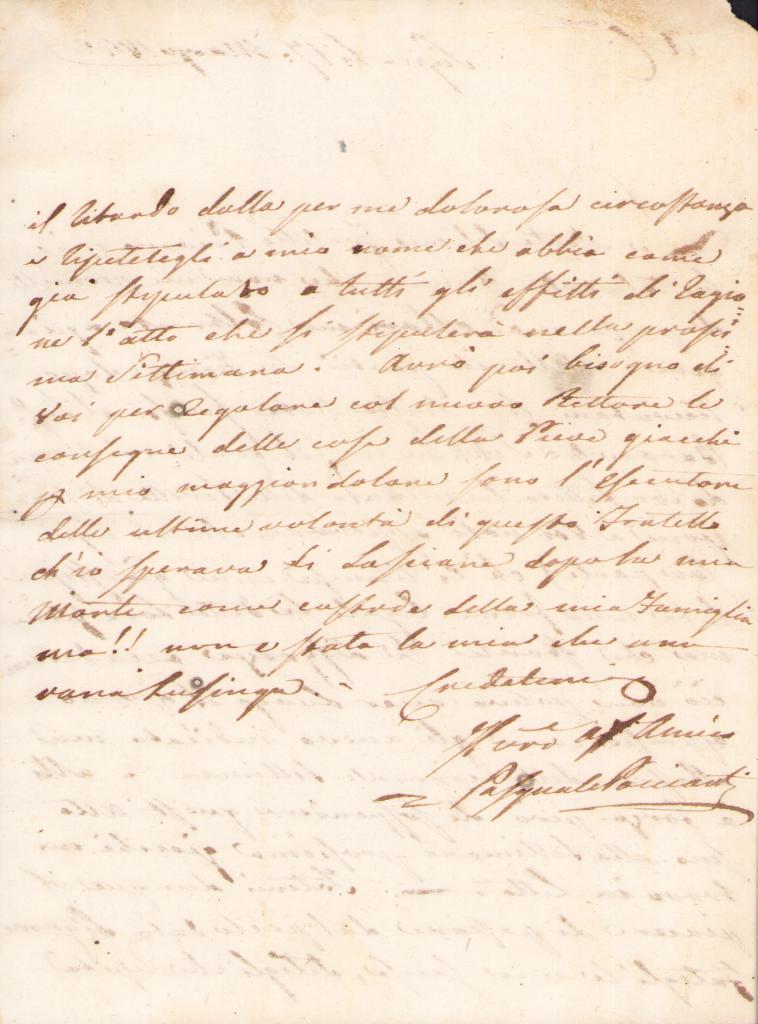 il ritardo dalla per me dolorosa circostanza
e ripetetegli a mio nome che abbia come
già stipulato a tutti gli effetti di ragio=
ne l'atto che si stipulerà nella prossi=
ma Settimana. Avrò poi bisogno di
Voi per regolare col nuovo Rettore le
consegne delle cose della Pieve giacchè
p mio maggior dolore sono l'Esecutore
delle ultime volontà di questo Fratello
ch'io sperava di Lasciare dopo la mia
Morte come custode della mia Famiglia
ma!! non è stata la mia che una
vana Lusinga. - Credetemi
Vro aff Amico
Pasquale Poccianti